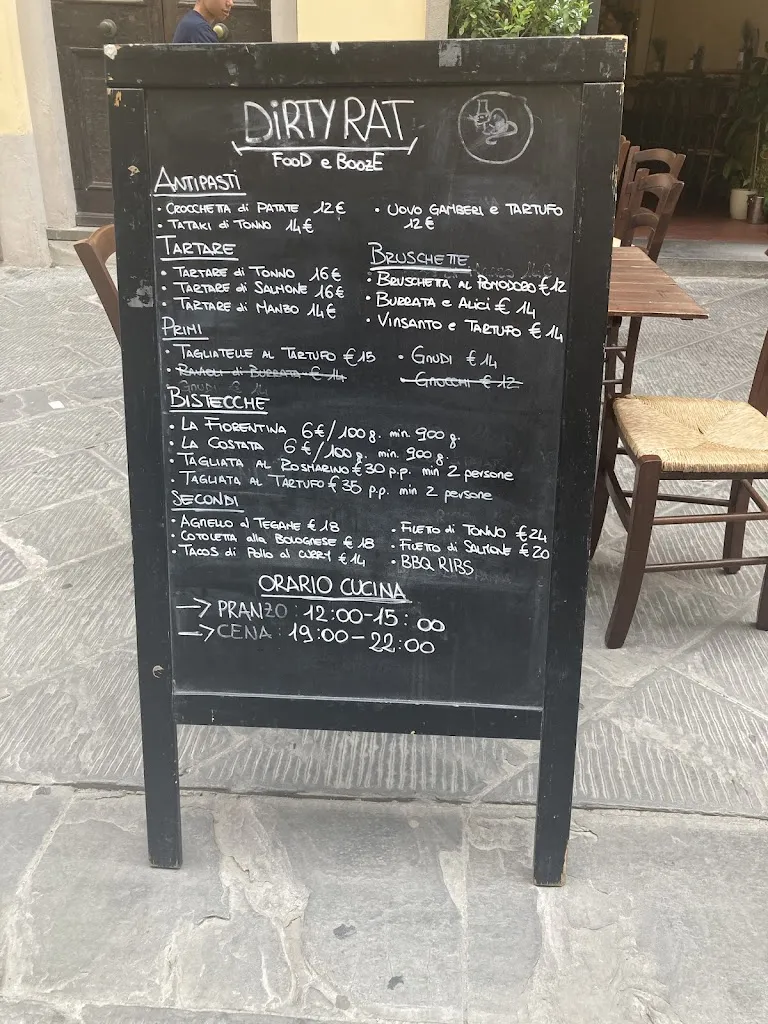 DiRTY RAT
FooD e BoozE
ANTIPASTI
• CROCCHETTA di PATATE 12€
• TATAKI di TONNO 14€
• UOVO GAMBERI e TARTUFO
12€
TARTARE
• TARTARE di TONNO 16€
• TARTARE di SALMONE 16€
• TARTARE di MANZO 14€
BRUSCHETTE
• BRUSCHETTA AL POMODORO €12
• BURRATA e ALICI € 14
• VINSANTO e TARTUFO € 14
PRIMI
• TAGLIATELLE AL TARTUFO €15
• RAVIOLI di BURRATA € 14
GNUDI € 14
• GNUDI €14
• GNOCCHI € 12
BISTECCHE
• LA FIORENTINA 6€/100g. min. 900g.
• LA COSTATA 6€/100g. min. 900g.
• TAGLIATA AL ROSMARINO €30 p.p. min 2 persone
• TAGLIATA AL TARTUFO €35 p.p. min 2 persone
SECONDI
• AGNELLO al TEGAME € 18
• COTOLETTA alla BOLOGNESE € 18
• TACOS di Pollo al CURRY €14
• FILETTO di TONNO €24
• FILETTO di SALMONE €20
• BBQ RIBS
ORARIO CUCINA
→ PRANZO: 12:00-15:00
→ CENA: 19:00-22:00